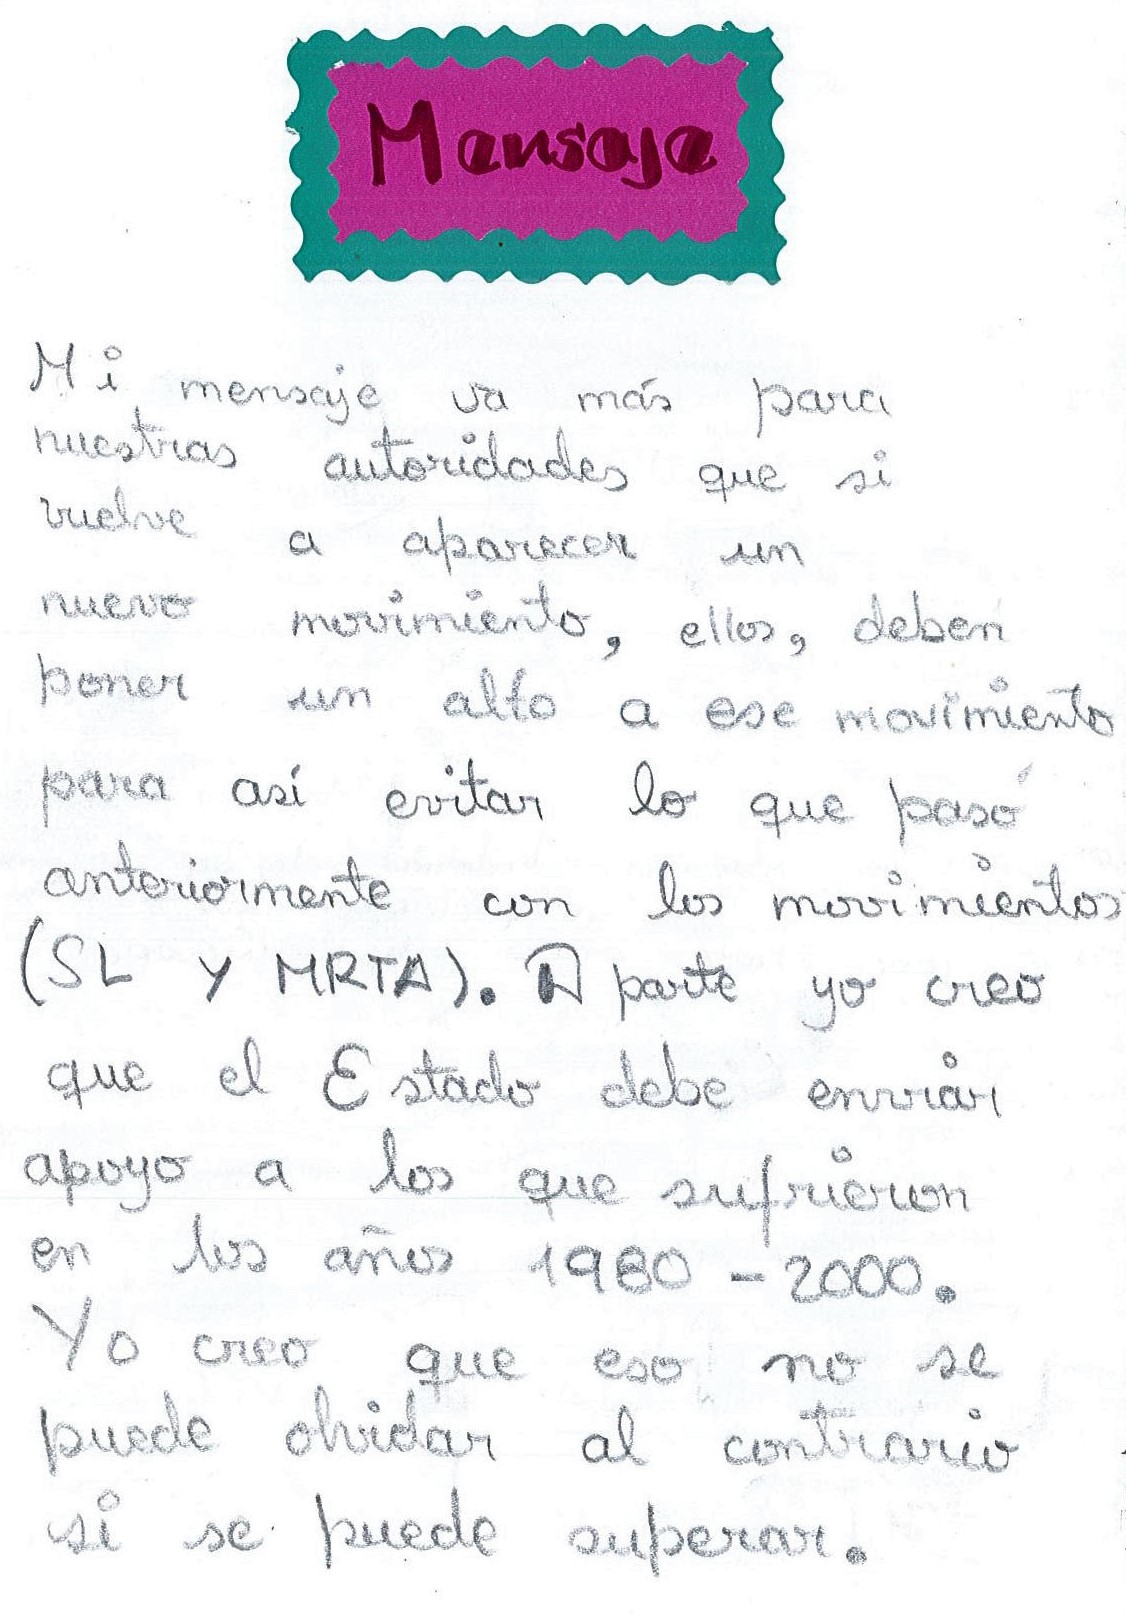 Mensaje
Mi mensaje va más para
nuestras autoridades que si
vuelve a aparecer un
nuevo movimiento, ellos, deben
poner un alto a ese movimiento
para así evitar lo que pasó
anteriormente con los movimientos
(SL Y MRTA). A parte yo creo
que el Estado debe enviar
apoyo a los que sufrieron
en los años 1980 - 2000.
Yo creo que eso no se
puede olvidar al contrario
si se puede superar.